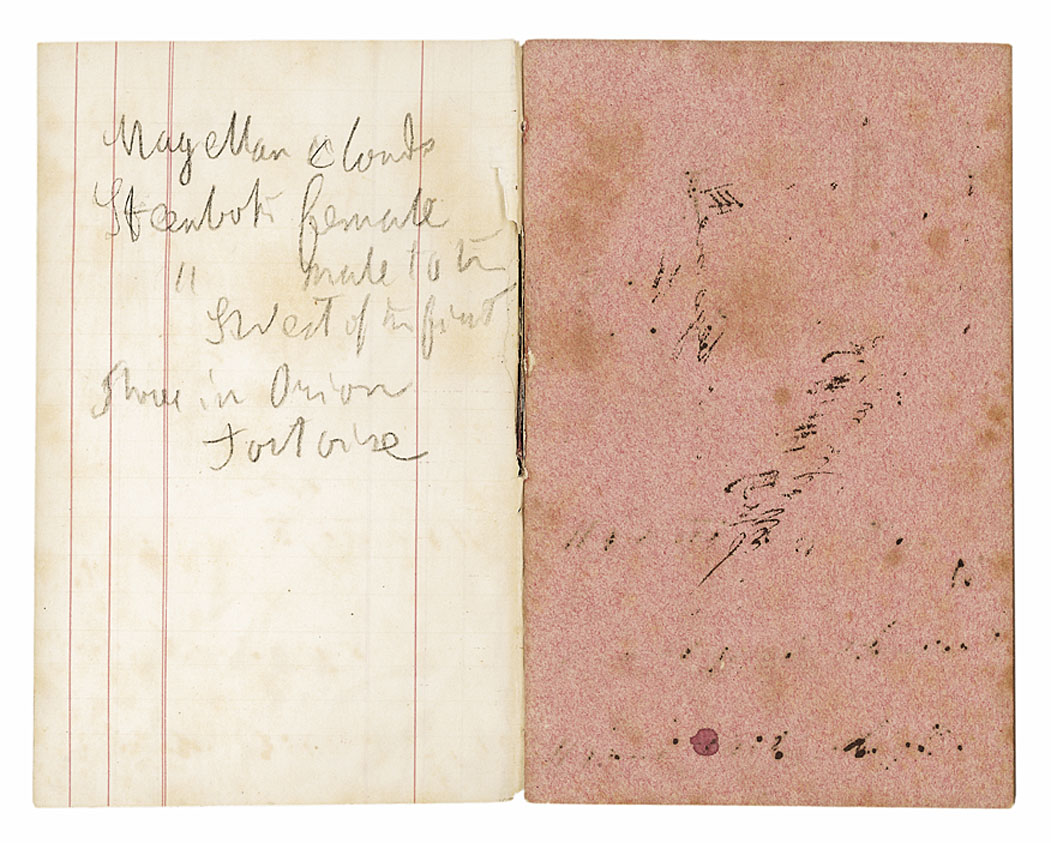 Magellan Clouds
Steenbok female
" male to the
S West of the first
Three in Orion
Tortoise